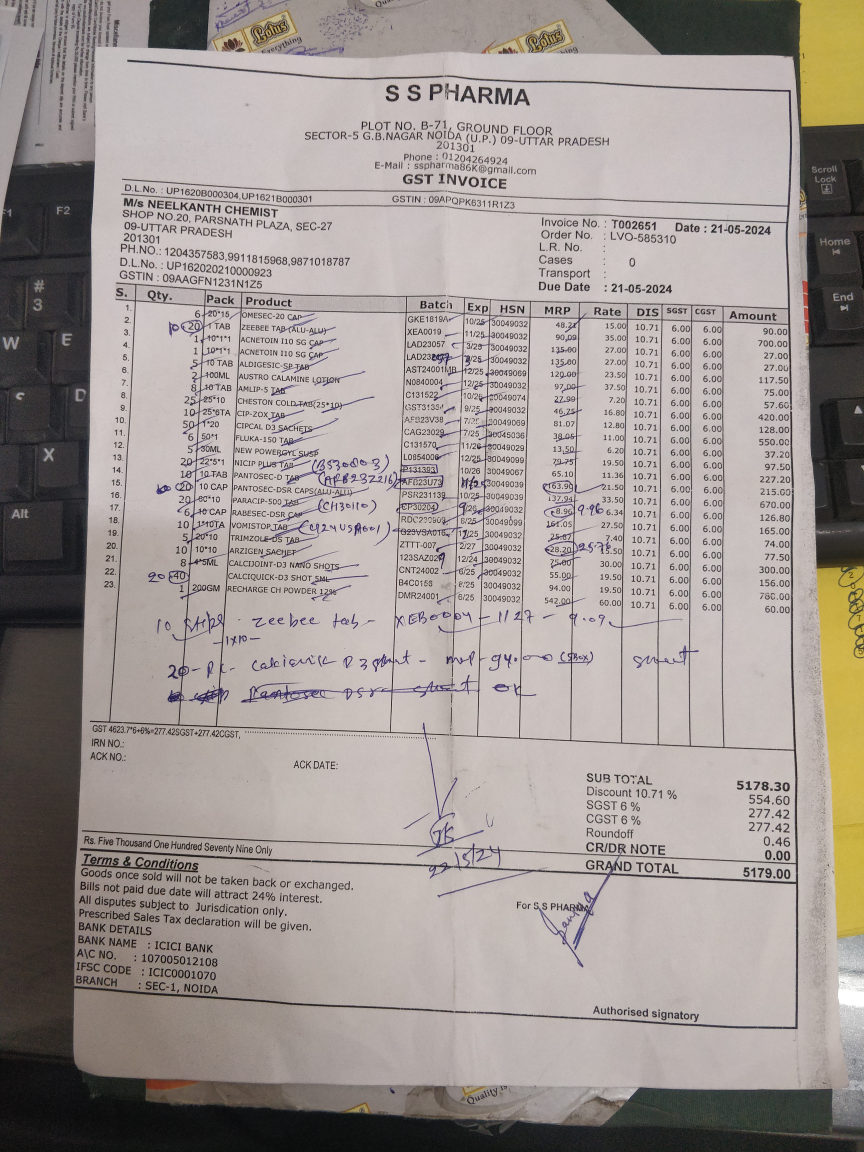 S S PHARMA
PLOT NO. B-71, GROUND FLOOR
SECTOR-5 G.B.NAGAR NOIDA (U.P.) 09-UTTAR PRADESH
201301
Phone : 01204264924
E-Mail : sspharma86K@gmail.com
GST INVOICE
D.L.No. : UP1620B000304,UP1621B000301 GSTIN : 09APQPK6311R1Z3
M/s NEELKANTH CHEMIST
SHOP NO.20, PARSNATH PLAZA, SEC-27
09-UTTAR PRADESH
201301
PH.NO.: 1204357583,9911815968,9871018787
D.L.No. : UP162020210000923
GSTIN : 09AAGFN1231N1Z5
Invoice No. : T002651 Date : 21-05-2024
Order No. : LVO-585310
L.R. No. :
Cases : 0
Transport :
Due Date : 21-05-2024
S. Qty. Pack Product Batch Exp HSN MRP Rate DIS SGST CGST Amount
1. 6 20*15 OMESEC-20 CAP GKE1819A 10/25 30049032 48.21 15.00 10.71 6.00 6.00 90.00
2. 10 20 1 TAB ZEEBEE TAB(ALU-ALU) XEA0019 11/25 30049032 90.09 35.00 10.71 6.00 6.00 700.00
3. 1 10*1*1 ACNETOIN I10 SG CAP LAD23057 3/25 30049032 135.00 27.00 10.71 6.00 6.00 27.00
4. 1 10*1*1 ACNETOIN I10 SG CAP 30049032 135.00 27.00 10.71 6.00 6.00 27.00
5. 5 10 TAB ALDIGESIC-SP TAB AST24001MB 12/25 30049069 120.00 23.50 10.71 6.00 6.00 117.50
6. 2 100ML AUSTRO CALAMINE LOTION N0840004 12/25 30049032 97.00 37.50 10.71 6.00 6.00 75.00
7. 8 10 TAB AMLIP-5 TAB C131522 10/26 30049074 27.90 7.20 10.71 6.00 6.00 57.60
8. 25 25*10 CHESTON COLD TAB(25*10) 9/25 30049032 46.75 16.80 10.71 6.00 6.00 420.00
9. 10 25*6TA CIP-ZOX TAB AFB23V38 7/25 30049069 81.07 12.80 10.71 6.00 6.00 128.00
10. 50 1*20 CIPCAL D3 SACHETS CAG23029 7/25 30045036 38.05 11.00 10.71 6.00 6.00 550.00
11. 6 50*1 FLUKA-150 TAB C131570 11/26 30049029 13.50 6.20 10.71 6.00 6.00 37.20
12. 5 30ML NEW POWERGYL SUSP L0854006 12/25 30049099 19.50 10.71 6.00 6.00 97.50
13. 20 22*5*1 NICIP PLUS TAB (BS30803) P131383 10/26 30049067 65.10 11.36 10.71 6.00 6.00 227.20
14. 10 10 TAB PANTOSEC-D TAB (AFB23Z216) AFB23U73 11/25 30049039 163.90 21.50 10.71 6.00 6.00 215.00
15. 20 10 CAP PANTOSEC-DSR CAPS(ALU-ALU) PSR231139 10/25 30049039 137.94 33.50 10.71 6.00 6.00 670.00
16. 20 60*10 PARACIP-500 TAB (CH30110) CP30204 30049032 8.96 9.96 6.34 10.71 6.00 6.00 126.80
17. 6 10 CAP RABESEC-DSR CAP RDC230903 8/25 30049099 161.05 27.50 10.71 6.00 6.00 165.00
18. 10 1*10TA VOMISTOP TAB (G24VSA001) G23VSA018 30049032 25.87 7.40 10.71 6.00 6.00 74.00
19. 5 20*10 TRIMZOLE DS TAB ZTTT-007 2/27 30049032 28.20 15.50 10.71 6.00 6.00 77.50
20. 10 10*10 ARZIGEN SACHET 123SAZ029 12/24 30049032 75.00 30.00 10.71 6.00 6.00 300.00
21. 8 4*5ML CALCIJOINT-D3 NANO SHOTS CNT24002 6/25 30049032 55.00 19.50 10.71 6.00 6.00 156.00
22. 20 40 CALCIQUICK-D3 SHOT 5ML B4C0158 8/25 30049032 94.00 19.50 10.71 6.00 6.00 780.00
23. 1 200GM RECHARGE CH POWDER 12% DMR24001 6/25 30049032 542.00 60.00 10.71 6.00 6.00 60.00
10 strips. Zeebee tab - XEB0004 - 1/27 - 9.09
- 1x10 -
20 - pc - Calciquick D3 shot - mrp - 94.00 (5Box) short
Pantosec DSR short ok
GST 4623.7*6+6%=277.42SGST+277.42CGST,
IRN NO.:
ACK NO.: ACK DATE:
SUB TOTAL 5178.30
Discount 10.71 % 554.60
SGST 6 % 277.42
CGST 6 % 277.42
Roundoff 0.46
CR/DR NOTE 0.00
GRAND TOTAL 5179.00
22/5/24
Rs. Five Thousand One Hundred Seventy Nine Only
Terms & Conditions
Goods once sold will not be taken back or exchanged.
Bills not paid due date will attract 24% interest.
All disputes subject to Jurisdication only.
Prescribed Sales Tax declaration will be given.
BANK DETAILS
BANK NAME : ICICI BANK
A\C NO. : 107005012108
IFSC CODE : ICIC0001070
BRANCH : SEC-1, NOIDA
For S S PHARMA
Authorised signatory
Lotus
Everything
Lotus
Scroll Lock
Home
End
F1
F2
#
3
W
E
S
D
X
Alt